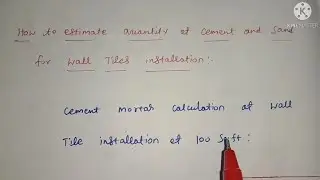 How to estimate quantity of Cement and Sand
for Wall Tiles installation:.
Cement mortar calculation of wall
Tile installation of 100 Sqft:
KINEMASTER